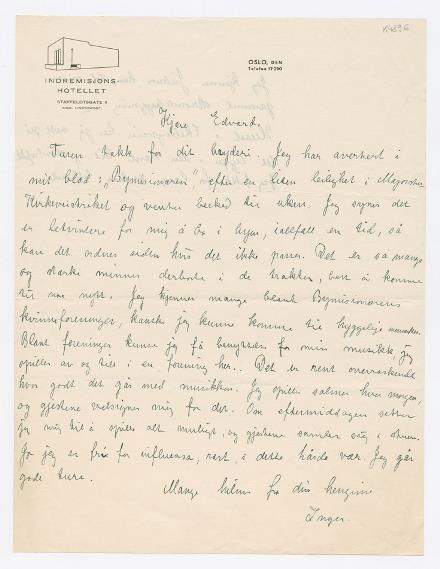 K4896
INDREMISJONS-
HOTELLET
STAFFELDTSGATE 4
OSLO, DEN
Telefon 17290
Kjære Edvard.
Tusen takk for dit bryderi. Jeg har avertert i
mit blad: "Bymisjonæren" efter en liten leilighet i Majorstu-
Kirkeveistrøket og venter besked til uken. Jeg synes det
er lettvintere for mig å bo i byen, iallfall en tid, så
kan det ordnes siden hvis det ikke passer. Det er så mange
og sterke minner derborte i de trakter, best å komme
til noe nytt. Jeg kjenner mange blant Bymisjonærens
kvinneforeninger, kanske jeg kunne komme til hyggelige mennesker.
Blant foreninger kunne jeg få benyttelse for min musikk, jeg
spiller av og til i en forening her. Det er rent overraskende
hvor godt det går med musikken. Jeg spiller salmer hver morgen
og gjestene velsigner mig for det. Om eftermiddagen setter
jeg mig til å spille alt mulig, og gjestene samler seg i stuen.
Jo jeg er fri for influensa, rart, i dette hårde vær. Jeg går
gode ture.
Mange hilsen fra din hengivne
Inger.